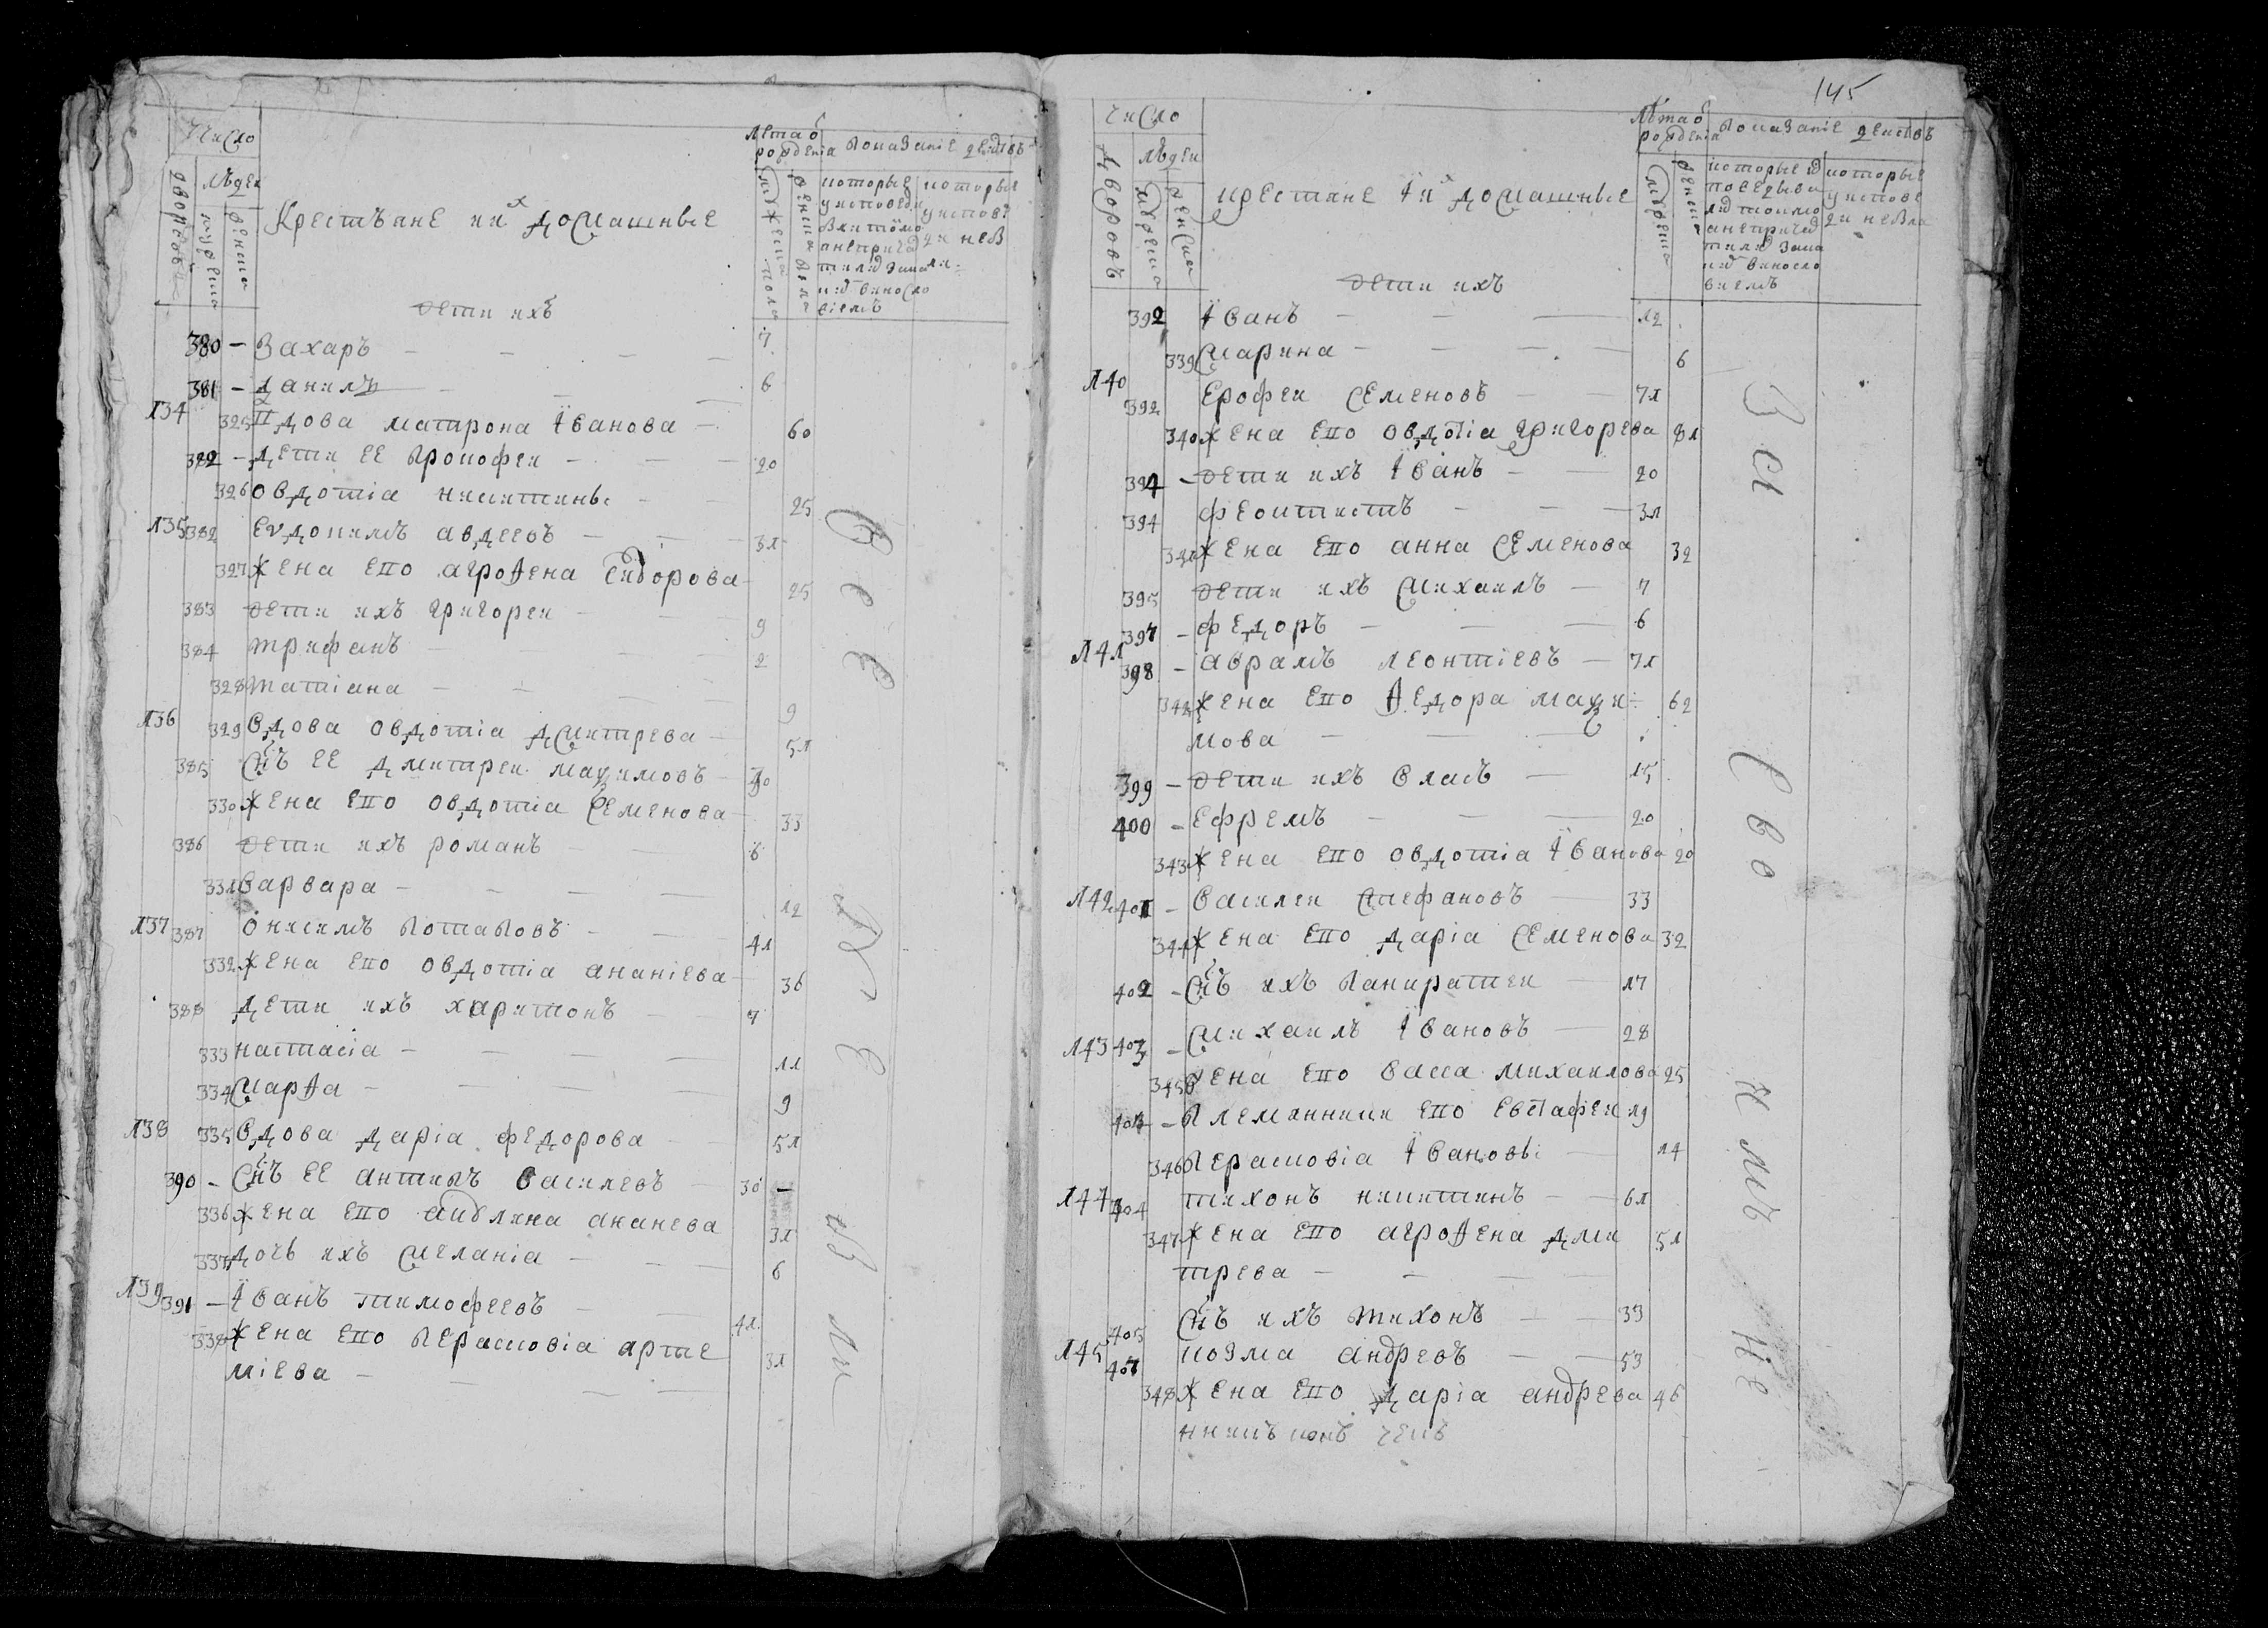 Число
дворовъ
людеи
мужеска
женска
Крестьяне и их домашные
Лета о рождения
мужеска пола
женска пола
Показание действъ
которые у исповеди
которые у исповеди не
дети ихъ
380 – Захаръ – 7
381 – Данилъ – 6
134 325 Вдова матрона Ïванова – 60
382 – дети ее Прокофеи – 20
326 овдотiа никитины – 25
135 382 Еvдокимъ авдеевъ – 31
327 жена ево агроѳена Сидорова 25
383 дети ихъ григореи – 9
384 трифанъ – 2
328 татiана – 9
136 329 Вдова овдотiа дмитрева – 51
385 Снъ ее дмитреи маѯимовъ – 30
330 жена ево овдотiа Семенова 33
386 дети ихъ романъ – 6
331 Варвара – 12
137 387 онисимъ Потаповъ – 41
332 жена ево овдотiа ананiева 36
388 дети ихъ харитонъ – 7
333 настасiа – 11
334 марѳа – 9
138 335 Вдова дарiа федорова – 51
390 – Снъ ее антипъ Василевъ – 30
336 жена ево акулина ананева 31
337 дочь ихъ меланiа – 6
139 391 – Ïванъ тимофеевъ – 41
338 жена ево Перасковiа арте 31
мiева –
145
Число
дворовъ
людеи
мужеска
женска
крестяне ï ихъ домашные
Лѣта о рождениа
мужеска
женска
Показанiе действъ
которые у исповеди не
дети ихъ
392 Ïванъ – 12
339 марина – 6
140 392 Ерофеи Семеновъ – 71
340 жена ево овдотiа григорева 81
394 – дети ихъ Ïванъ – 20
394 феоктистъ – 31
341 жена ево анна Семенова 32
395 дети ихъ михаилъ – 7
397 – федоръ – 6
141 398 – аврамъ леонтiевъ – 71
342 жена ево ѳедора маѯи 62
мова –
399 – дети ихъ Власъ – 15
400 – Ефремъ – 20
343 жена ево овдотiа Ïванова 20
142 401 – Василеи Стефановъ – 33
344 жена ево дарiа Семенова 32
402 – Снъ ихъ Панкратеи – 17
143 403 – михаилъ Ïвановъ – 28
345 жена ево Васса михаилова 25
404 – Племянники ево Евстафеи 19
346 Перасковiа Ïвановы – 14
144 404 тихонъ никитинъ – 61
347 жена ево агроѳена дми 51
трева –
405 Снъ ихъ тихонъ – 33
145 407 козма андревъ – 53
348 жена ево дарiа андрева 46